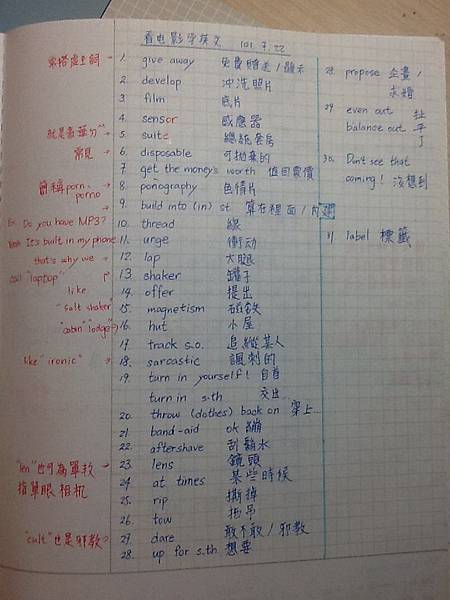 看电影学英文 101.7.22
常搭虛主詞
1. give away 免費贈送/顯示
2. develop 沖洗照片
3. film 底片
4. sensor 感應器
就是豪華ㄉ"
5. suite 總統套房
常見
6. disposable 可拋棄的
7. get the money's worth 值回票價
簡稱porn. porno
8. ponography 色情片
9. build into (in) st 算在裡面/內建
Ex. Do you have MP3?
Yeah It's built in my phone
10. thread 線
11. urge 衝动
that's why we call "laptop"
12. lap 大腿
13. shaker 罐子
like "salt shaker"
14. offer 提出
15. magnetism 磁铁
"cabin" "lodge"
16. hut 小屋
17. track s.o. 追縱某人
like "ironic"
18. sarcastic 諷刺的
19. turn in yourself! 自首
turn in s.th 交出
20. throw (clothes) back on 穿上
21. band-aid ok繃
22. aftershave 刮鬍水
"len"也可為單数
指單眼相机
23. lens 鏡頭
24. at times 某些時候
25. rip 撕掉
26. tow 拖吊
"cult"也是邪教
27. dare 敢不敢/邪教
28. up for s.th 想要
28. propose 企畫/求婚
29. even out 扯
balance out 平了
30. Don't see that
coming! 沒想到
31 label 標籤